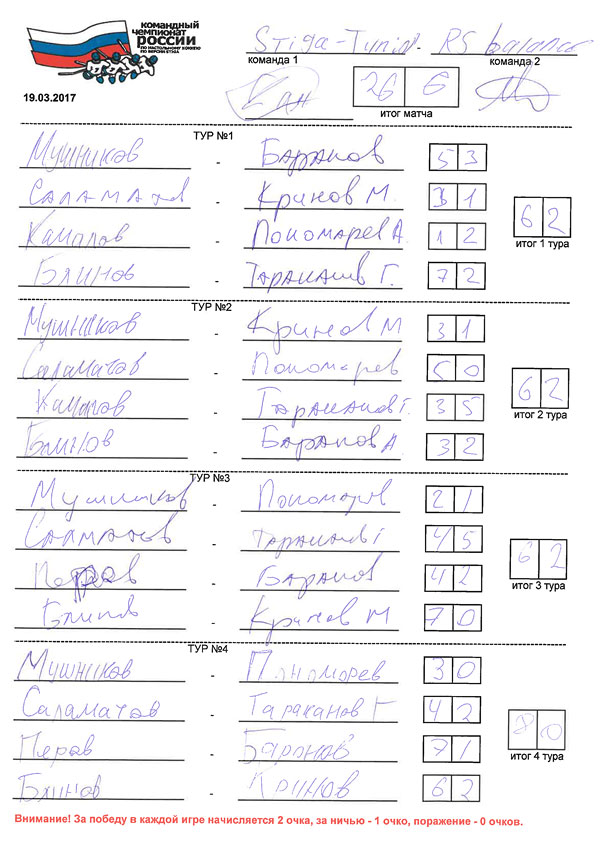 КОМАНДНЫЙ
ЧЕМПИОНАТ
РОССИИ
ПО НАСТОЛЬНОМУ ХОККЕЮ
ПО ВЕРСИИ ETHGA
19.03.2017
Stiga-Тула - RS
команда 1 команда 2
26 6
итог матча
ТУР №1
Мушников - Баранов 5 3
Саламатов - Кринов М. 3 1
- Пономарев А. 1 2
Блинов - Тараканов Г. 7 2
6 2
итог 1 тура
ТУР №2
Мушников - Кринов М 3 1
Саламатов - Пономарев 5 0
- Тараканов Г. 3 5
Блинов - Баранов А 3 2
6 2
итог 2 тура
ТУР №3
Мушников - Пономарев 2 1
Саламатов - Тараканов Г 4 5
- Баранов 4 2
Блинов - Кринов М 7 0
6 2
итог 3 тура
ТУР №4
Мушников - Пономорев 3 0
Саламатов - Тараканов Г 4 2
Перов - Баранов 7 1
Блинов - Кринов 6 2
8 0
итог 4 тура
Внимание! За победу в каждой игре начисляется 2 очка, за ничью - 1 очко, поражение - 0 очков.